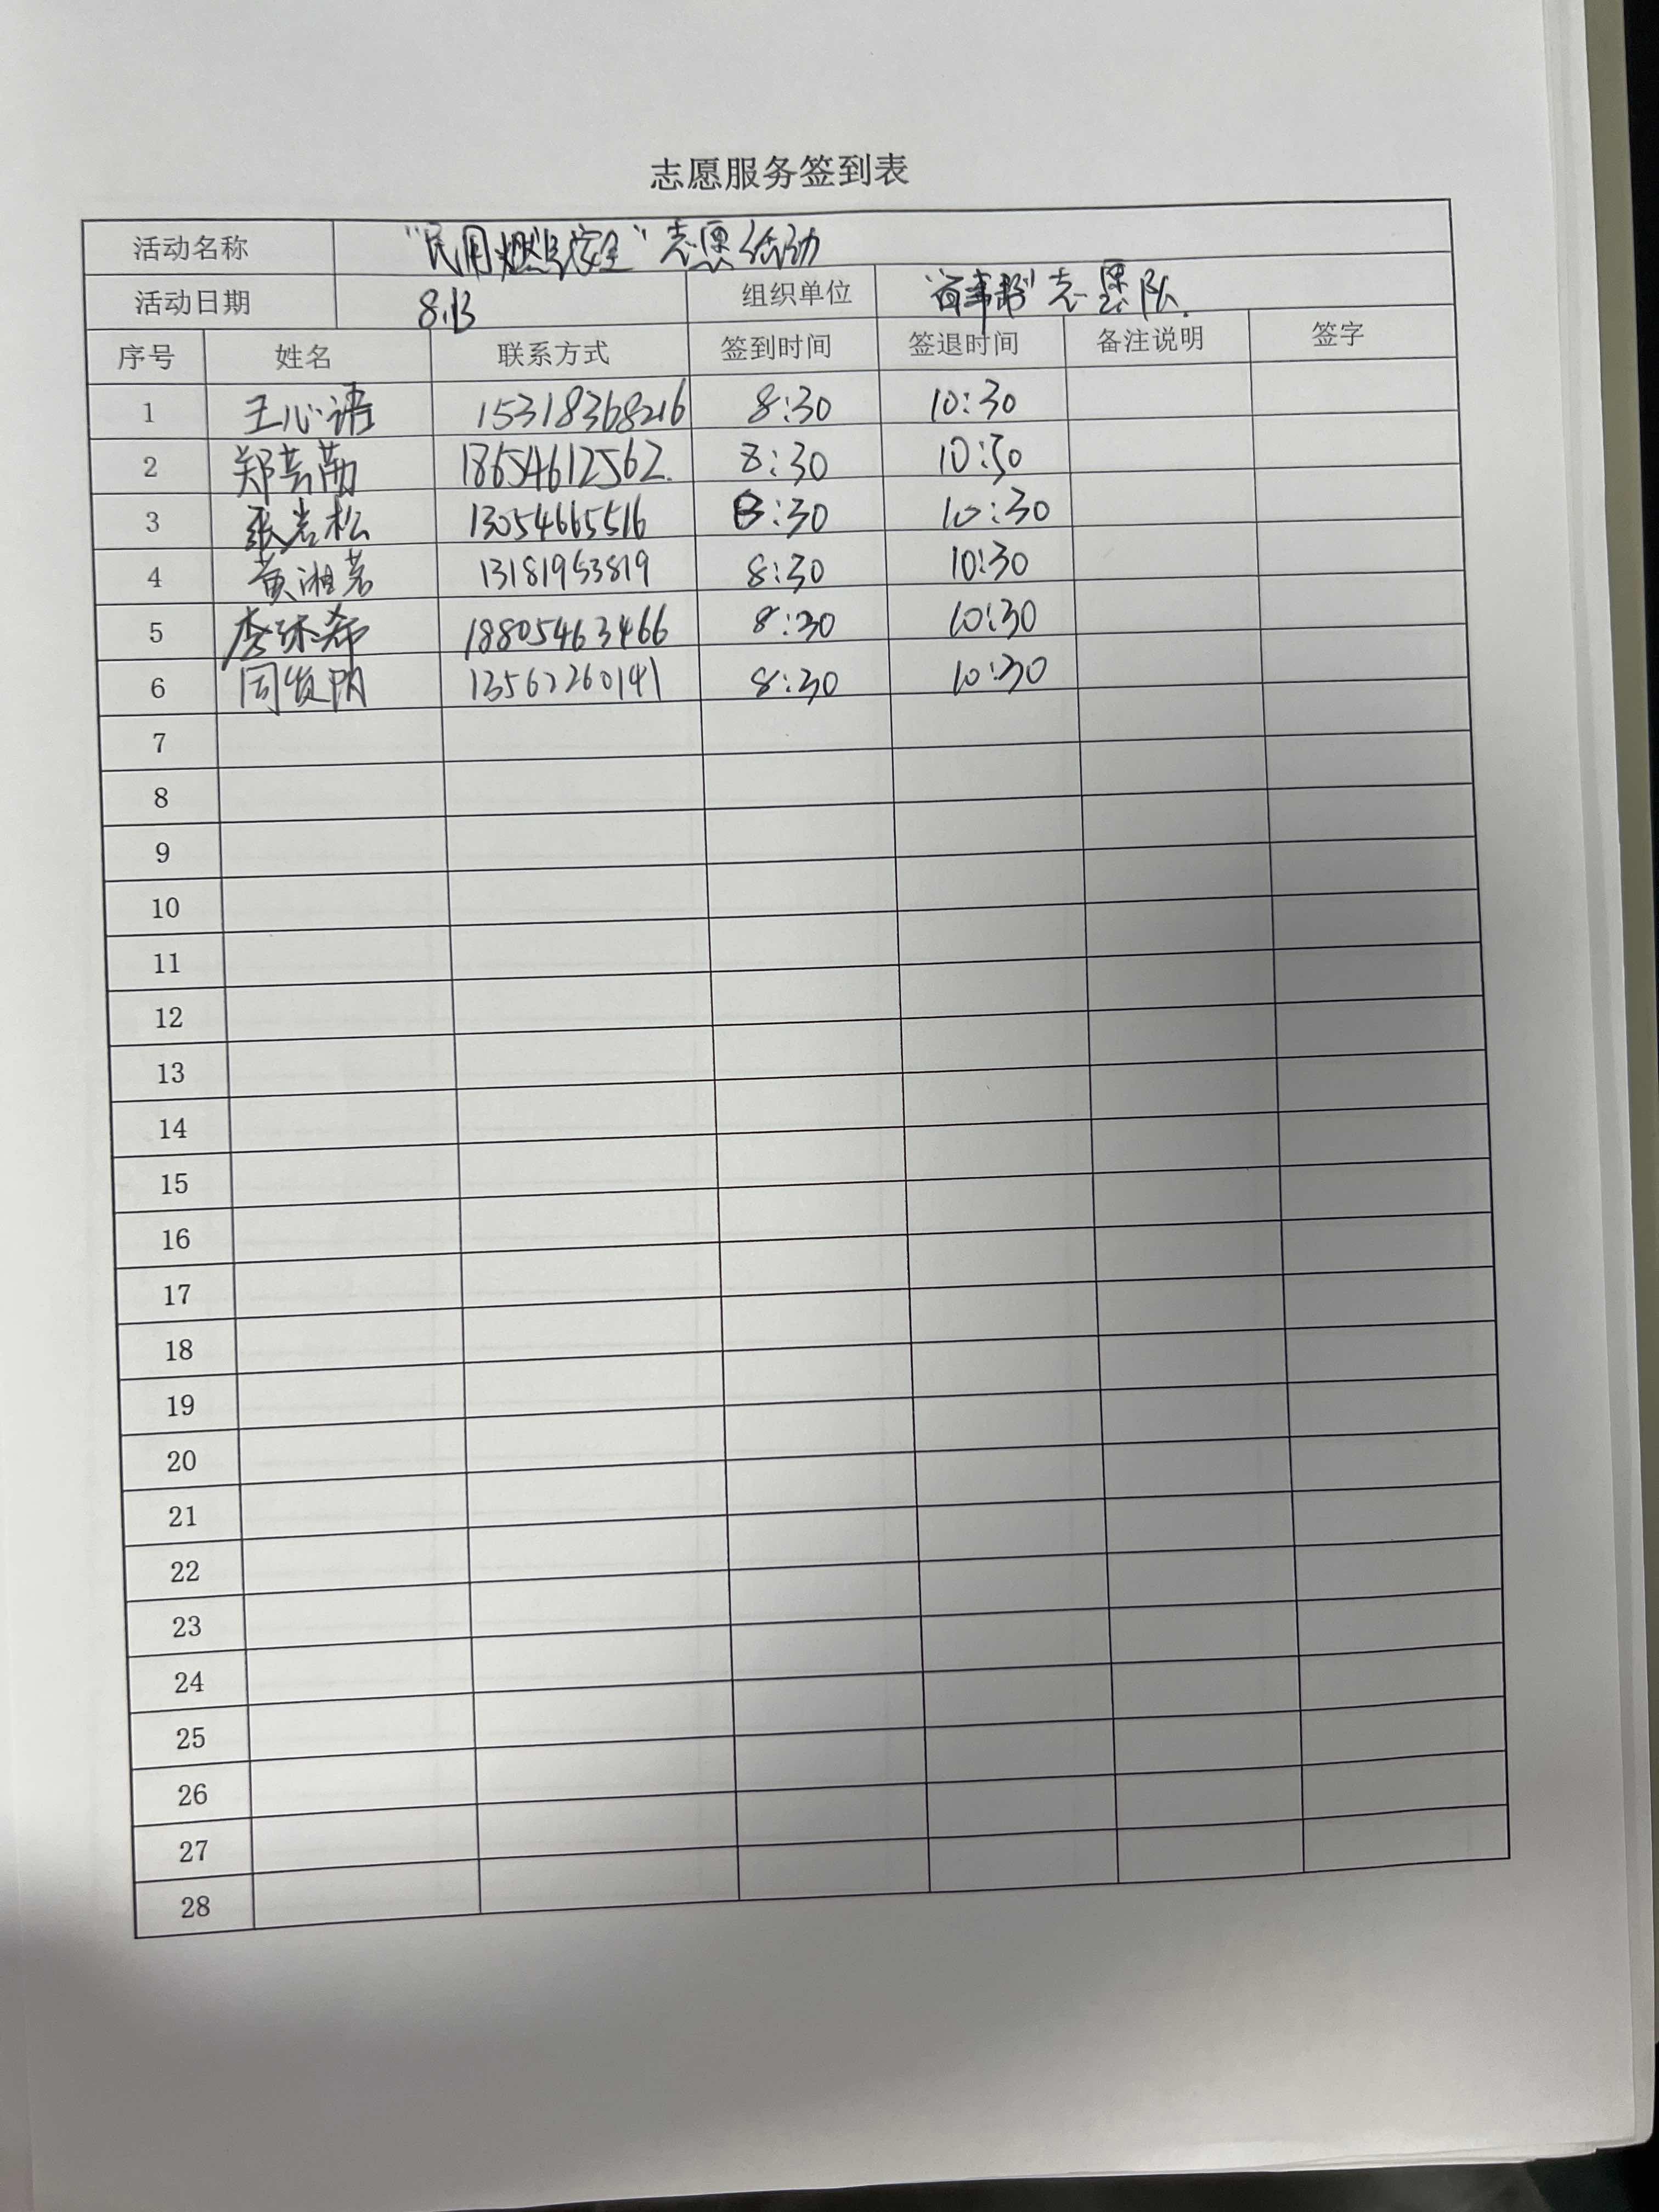 志愿服务签到表
活动名称 "民用燃气安全"志愿活动
活动日期 8.13 组织单位 志愿队
序号 姓名 联系方式 签到时间 签退时间 备注说明 签字
1 王心语 15318368216 8:30 10:30
2 郑 18654612562. 8:30 10:30
3 张岩松 13054665516 8:30 10:30
4 黄湘茗 13181953819 8:30 10:30
5 李 希 18805463466 8:30 10:30
6 周 13562260141 8:30 10:30
7
8
9
10
11
12
13
14
15
16
17
18
19
20
21
22
23
24
25
26
27
28